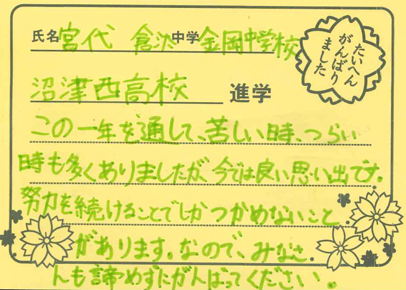 氏名 宮代 倉汰 中学 金岡中学校
たいへん
がんばり
ました
沼津西高校 進学
この一年を通して、苦しい時、つらい
時も多くありましたが、今では良い思い出です。
努力を続けることでしかつかめないこと
があります。なので、みなさ
んも諦めずにがんばってください。